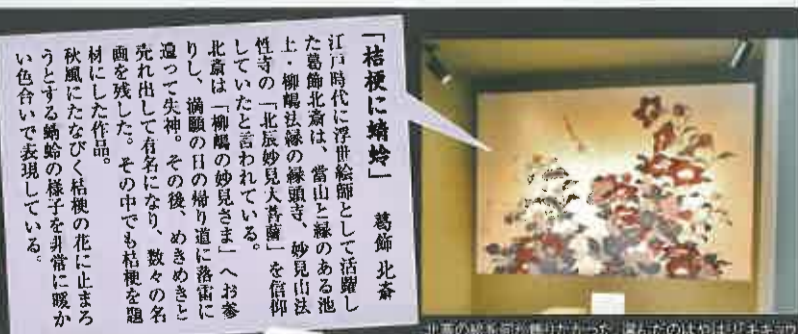 「桔梗に蜻蛉」 葛飾 北斎
江戸時代に浮世絵師として活躍し
た葛飾北斎は、當山と縁のある池
上・柳嶋法縁の縁頭寺、妙見山法
性寺の「北辰妙見大菩薩」を信仰
していたと言われている。
北斎は「柳嶋の妙見さま」へお参
りし、満願の日の帰り道に落雷に
遭って失神。その後、めきめきと
売れ出して有名になり、数々の名
画を残した。その中でも桔梗を題
材にした作品。
秋風にたなびく桔梗の花に止まろ
うとする蜻蛉の様子を非常に暖か
い色合いで表現している。